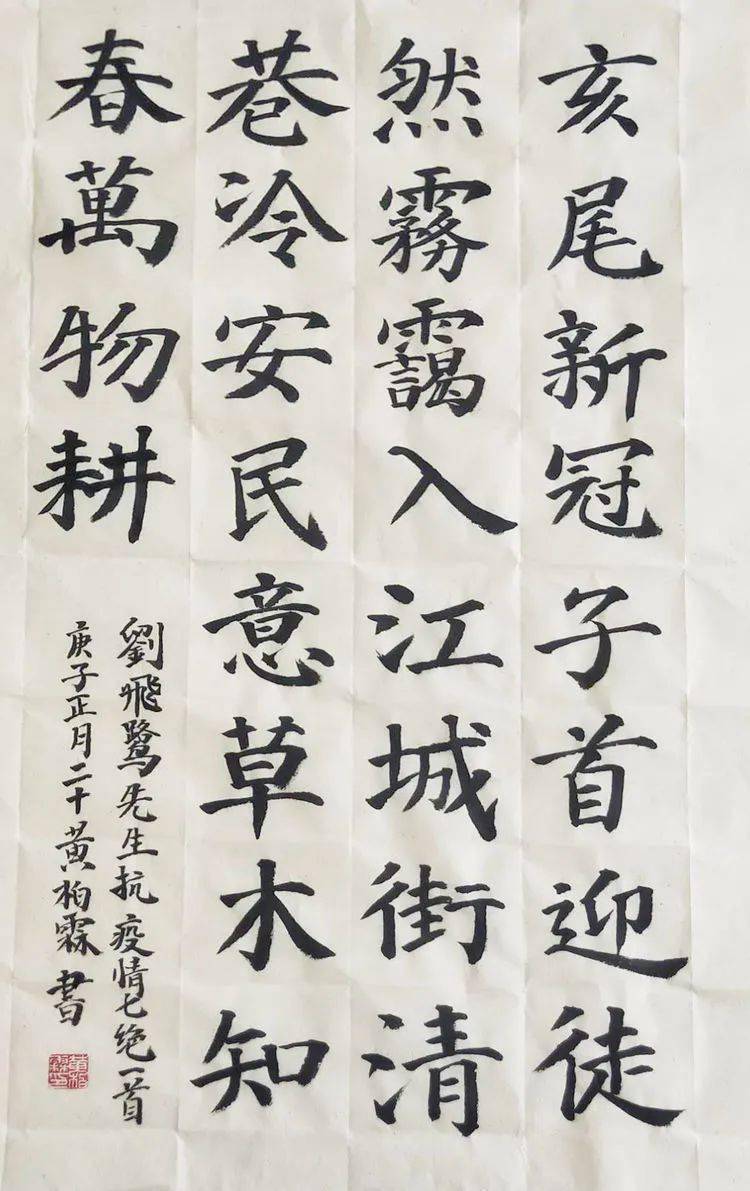 亥尾新冠子首迎徒
然霧靄入江城街清
巷冷安民意草木知
春萬物耕
劉飛鷺先生抗疫情七绝一首
庚子正月二十黄柏霖書